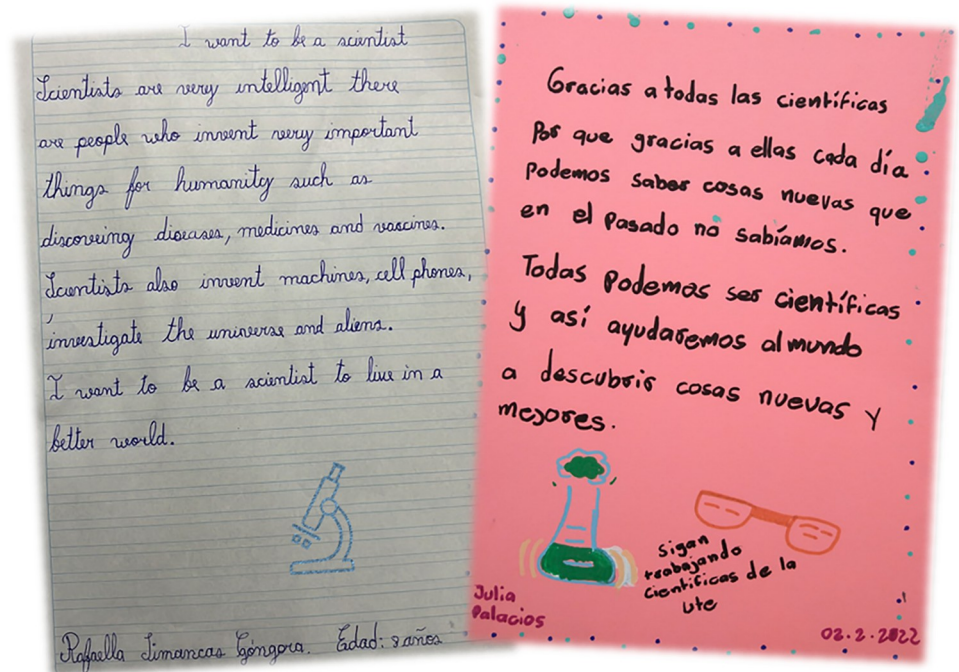 I want to be a scientist
Scientists are very intelligent there
are people who invent very important
things for humanity such as
discovering diseases, medicines and vaccines.
Scientists also invent machines, cell phones,
investigate the universe and aliens.
I want to be a scientist to live in a
better world.
Raffaella Simancas Góngora. Edad: 8 años
Gracias a todas las científicas
Por que gracias a ellas cada día
Podemos saber cosas nuevas que
en el pasado no sabíamos.
Todas podemos ser científicas
y así ayudaremos al mundo
a descubrir cosas nuevas y
mejores.
Sigan
trabajando
científicas de la
ute
Julia
Palacios
02.2.2022